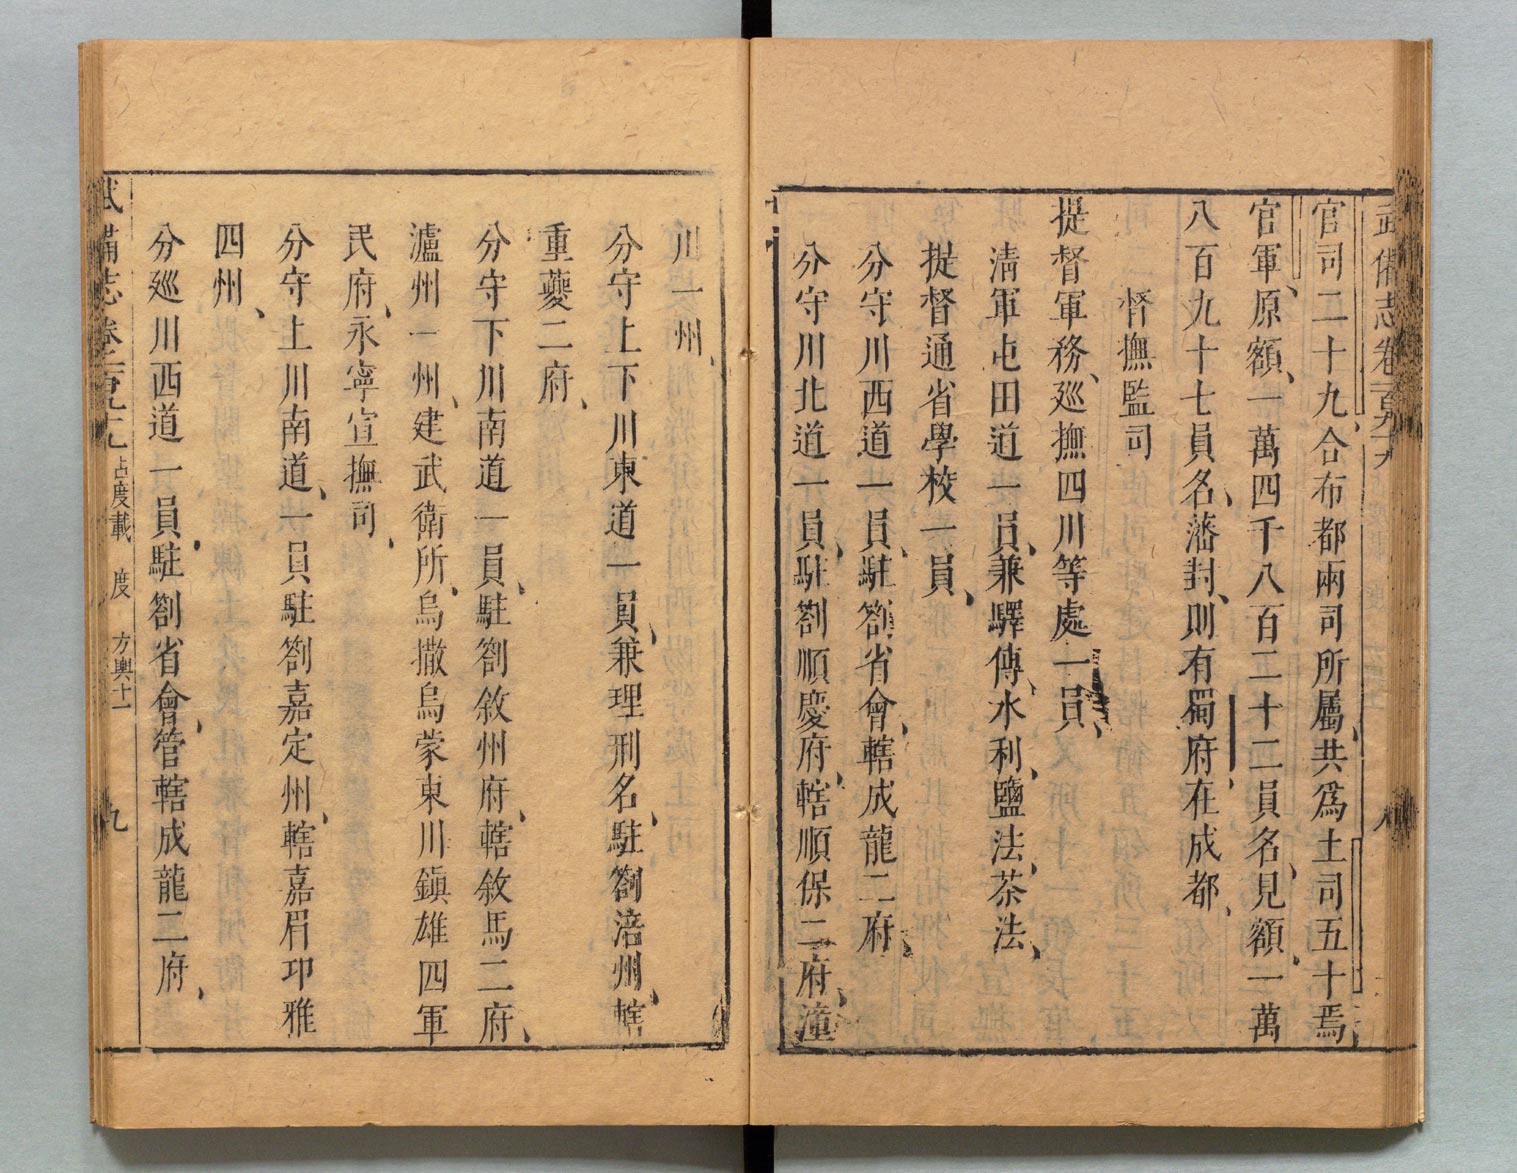 武備志卷一百九十九
八
官司二十九、合布都兩司所屬、共爲土司五十焉、
官軍、原額、一萬四千八百二十二員名、見額、一萬
八百九十七員名、藩封、則有蜀府、在成都、
督撫監司
提督軍務、巡撫四川等處一員、
清軍屯田道一員、兼驛傳、水利、鹽法、茶法、
提督通省學校一員、
分守川西道一員、駐劄省會、轄成龍二府、
分守川北道一員、駐劄順慶府、轄順保二府、潼
川一州、
分守上下川東道一員、兼理刑名、駐劄涪州、轄
重夔二府、
分守下川南道一員、駐劄敘州府、轄敘馬二府、
瀘州一州、建武衛所、烏撒烏蒙東川鎮雄四軍
民府、永寧宣撫司、
分守上川南道、一員駐劄嘉定州、轄嘉眉卭雅
四州、
分廵川西道一員、駐劄省會、管轄成龍二府、
武備志卷一百九十九 占度載 度 方輿十一 九